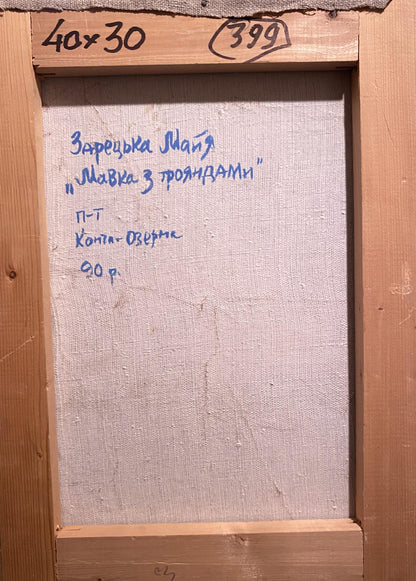 40×30
399
Зарецька Майя
„Мавка з трояндами"
п-т
Конча-Озерна
90 р.